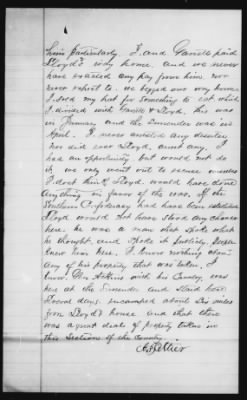 him particularly. I and Garrett paid
Lloyd's way home, and we never
have exacted any pay from him nor
ever expect to. we begged our way home
I sold my hat for something to eat which
I divided with Garrett & Lloyd, this was
in January and the Surrender was in
April. I never arrested any deserter
nor did ever Lloyd arrest any. I
had an opportunity but would not do
it. we only went out to secure ourselves
I don't think Lloyd would have done
anything in favor of the war. If the
Southern Confederacy had have been established
Lloyd would not have stood any chance
here. he was a man that spoke what
he thought, and spoke it publicly. People
knew him here. I know nothing about
any of his property that was taken. I
know Gen Atkins with his Cavalry, was
here at the Surrender and staid here
several days, encamped about six miles
from Lloyd's house and that there
was a great deal of property taken in
this section of the Country.